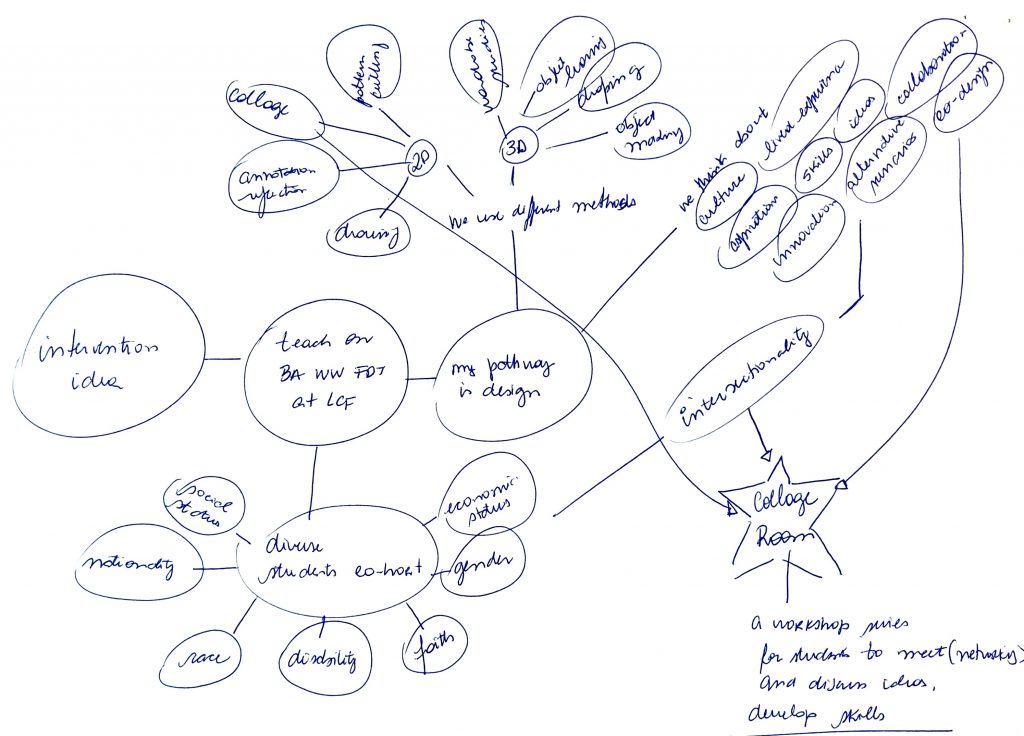 pattern
cutting
collage
annotation
reflection
drawing
2D
wardrobe
studies
object
draping
3D
object
making
We use different methods
we think about
lived experience
culture
skills
ideas
innovation
alternative
scenarios
collaboration
co-design
intervention
idea
teach on
BA WW FDT
at LCF
my pathway
is design
intersectionality
social
status
nationality
race
disability
faith
gender
economic
status
diverse
students co-hort
Collage
Room
a workshop series
for students to meet (networking)
and discuss ideas,
develop skills